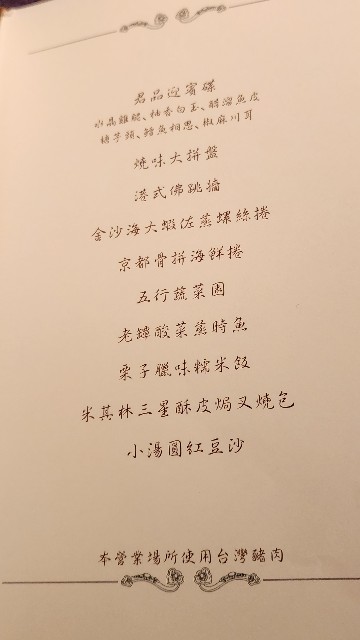 君品迎賓碟
水晶雞腿、柚香白玉、醋溜魚皮
糖芋頭、鱈魚相思、椒麻川耳
燒味大拼盤
港式佛跳牆
金沙海大蝦佐蒸螺絲捲
京都骨拼海鮮捲
五行蔬菜園
老罈酸菜蒸時魚
栗子臘味糯米飯
米其林三星酥皮焗叉燒包
小湯圓紅豆沙
本營業場所使用台灣豬肉